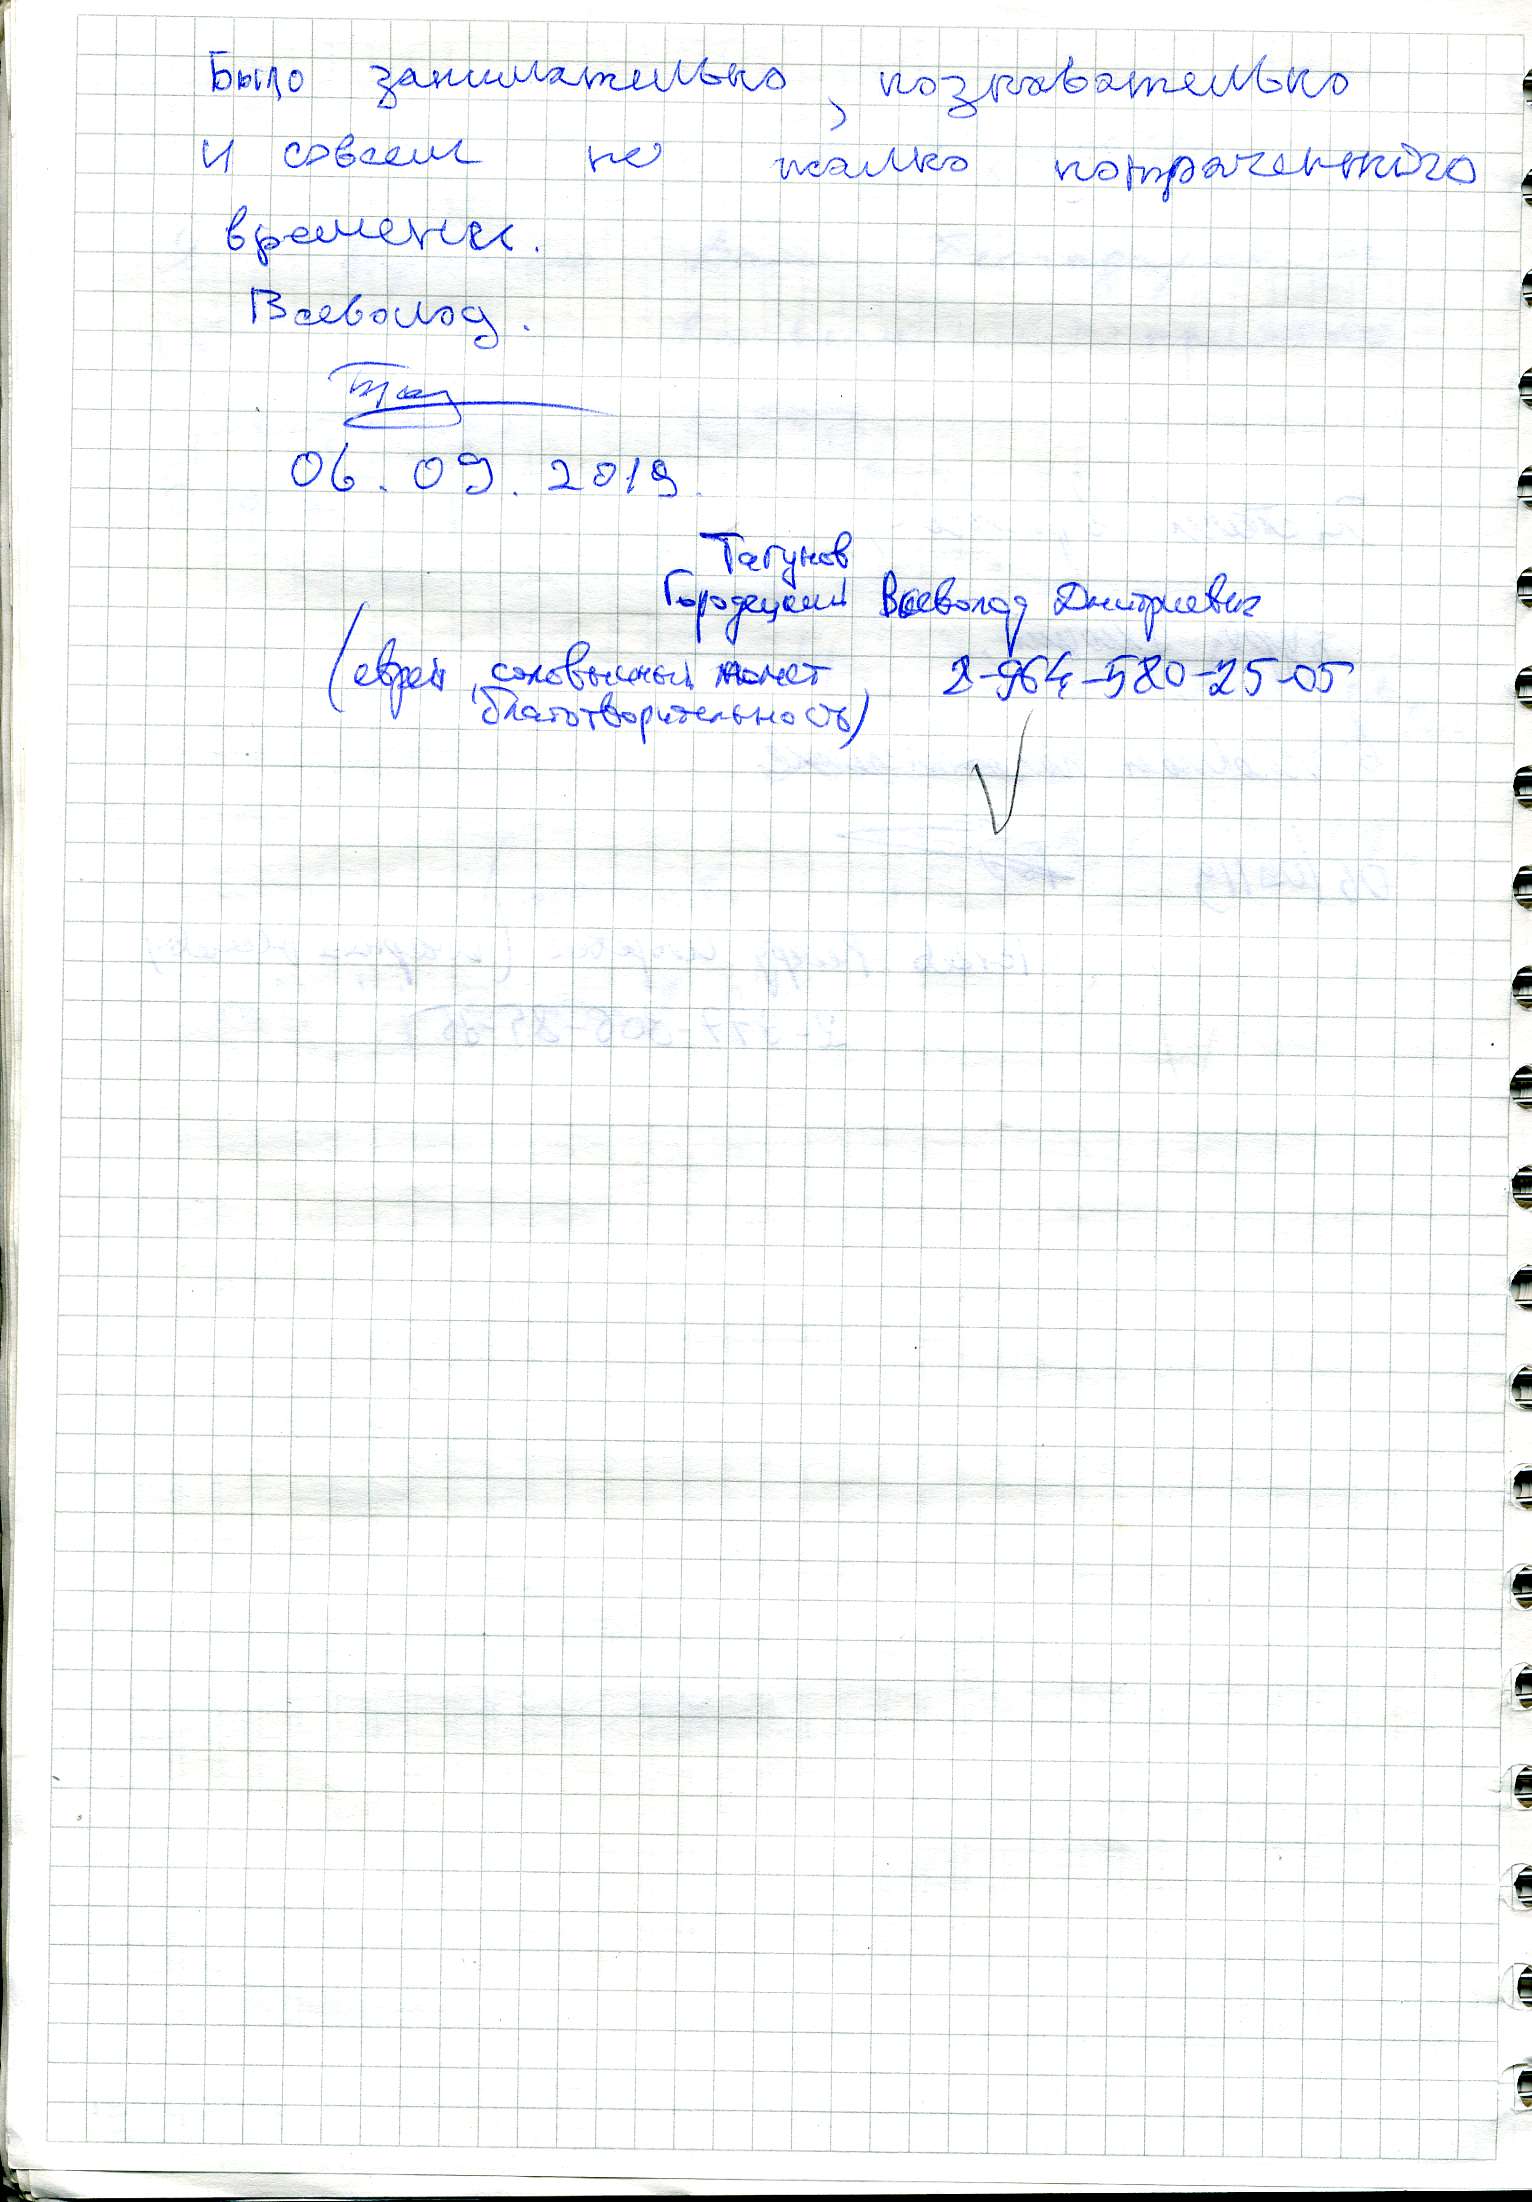 Было занимательно, познавательно
и совсем не жалко потраченного
времени.
Всеволод.
06.09.2019.
Тагунов
Городецкий Всеволод Дмитриевич
(еврей, соловьиный помет, 8-964-580-25-05
благотворительность)